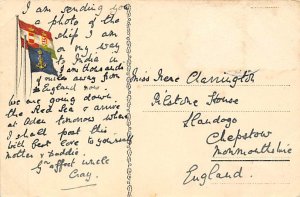 I am sending you
a photo of the
ship I am
on my way
to India in
I am thousands
of miles away from
England now.
We are going down
the Red Sea & arrive
at Aden tomorrow where
I shall post this
with best love to yourself
Mother & Daddie.
Yr affect uncle
Miss Irene Clarrington
House
Llandogo
Chepstow
Monmouthshire
England.